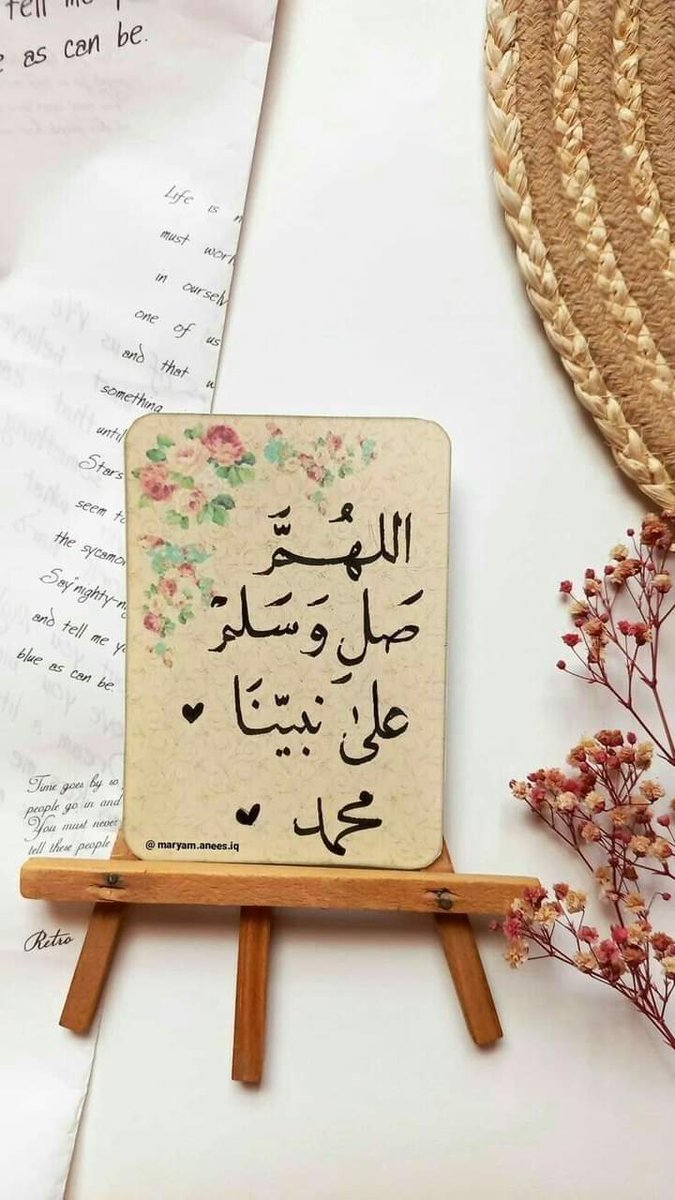 tell me
as can be.
Life is
must work
in ourselv
one of us
and that w
something
until
Stars
seem to
the sycamo
Say "nighty-n
and tell me y
blue as can be
اللهُمَّ
صَلِ وَسَلمْ
علىٰ نبيّنَا
محمد
@ maryam.anees.iq
Time goes by so
people go in and
You must never
tell these people
Retro